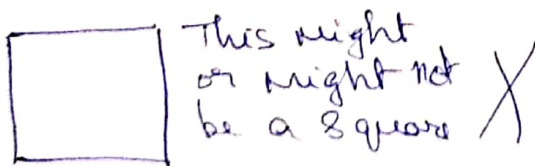 This might
or might not
be a square X